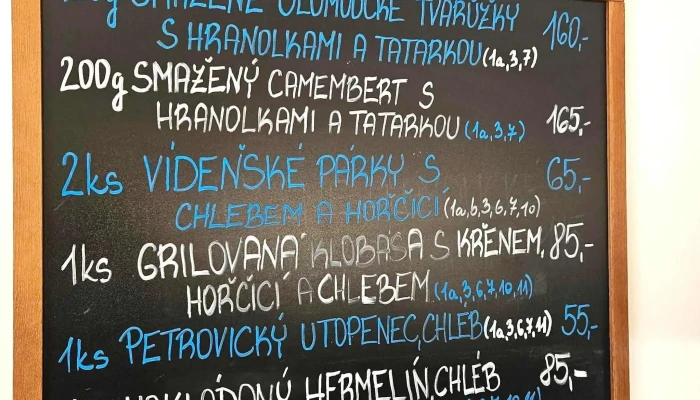 SMAŽENÉ OLOMOUCKÉ TVARŮŽKY
S HRANOLKAMI A TATARKOU (1a,3,7) 160,-
200g SMAŽENÝ CAMEMBERT S
HRANOLKAMI A TATARKOU (1a,3,7) 165,-
2ks VÍDEŇSKÉ PÁRKY S 65,-
CHLEBEM A HOŘČICÍ (1a,b,3,6,7,10)
1ks GRILOVANÁ KLOBÁSA S KŘENEM, 85,-
HOŘČICÍ A CHLEBEM (1a,3,6,7,10,11)
1ks PETROVICKÝ UTOPENEC, CHLÉB (1a,3,6,7,11) 55,-
NAKLÁDANÝ HERMELÍN, CHLÉB 85,-